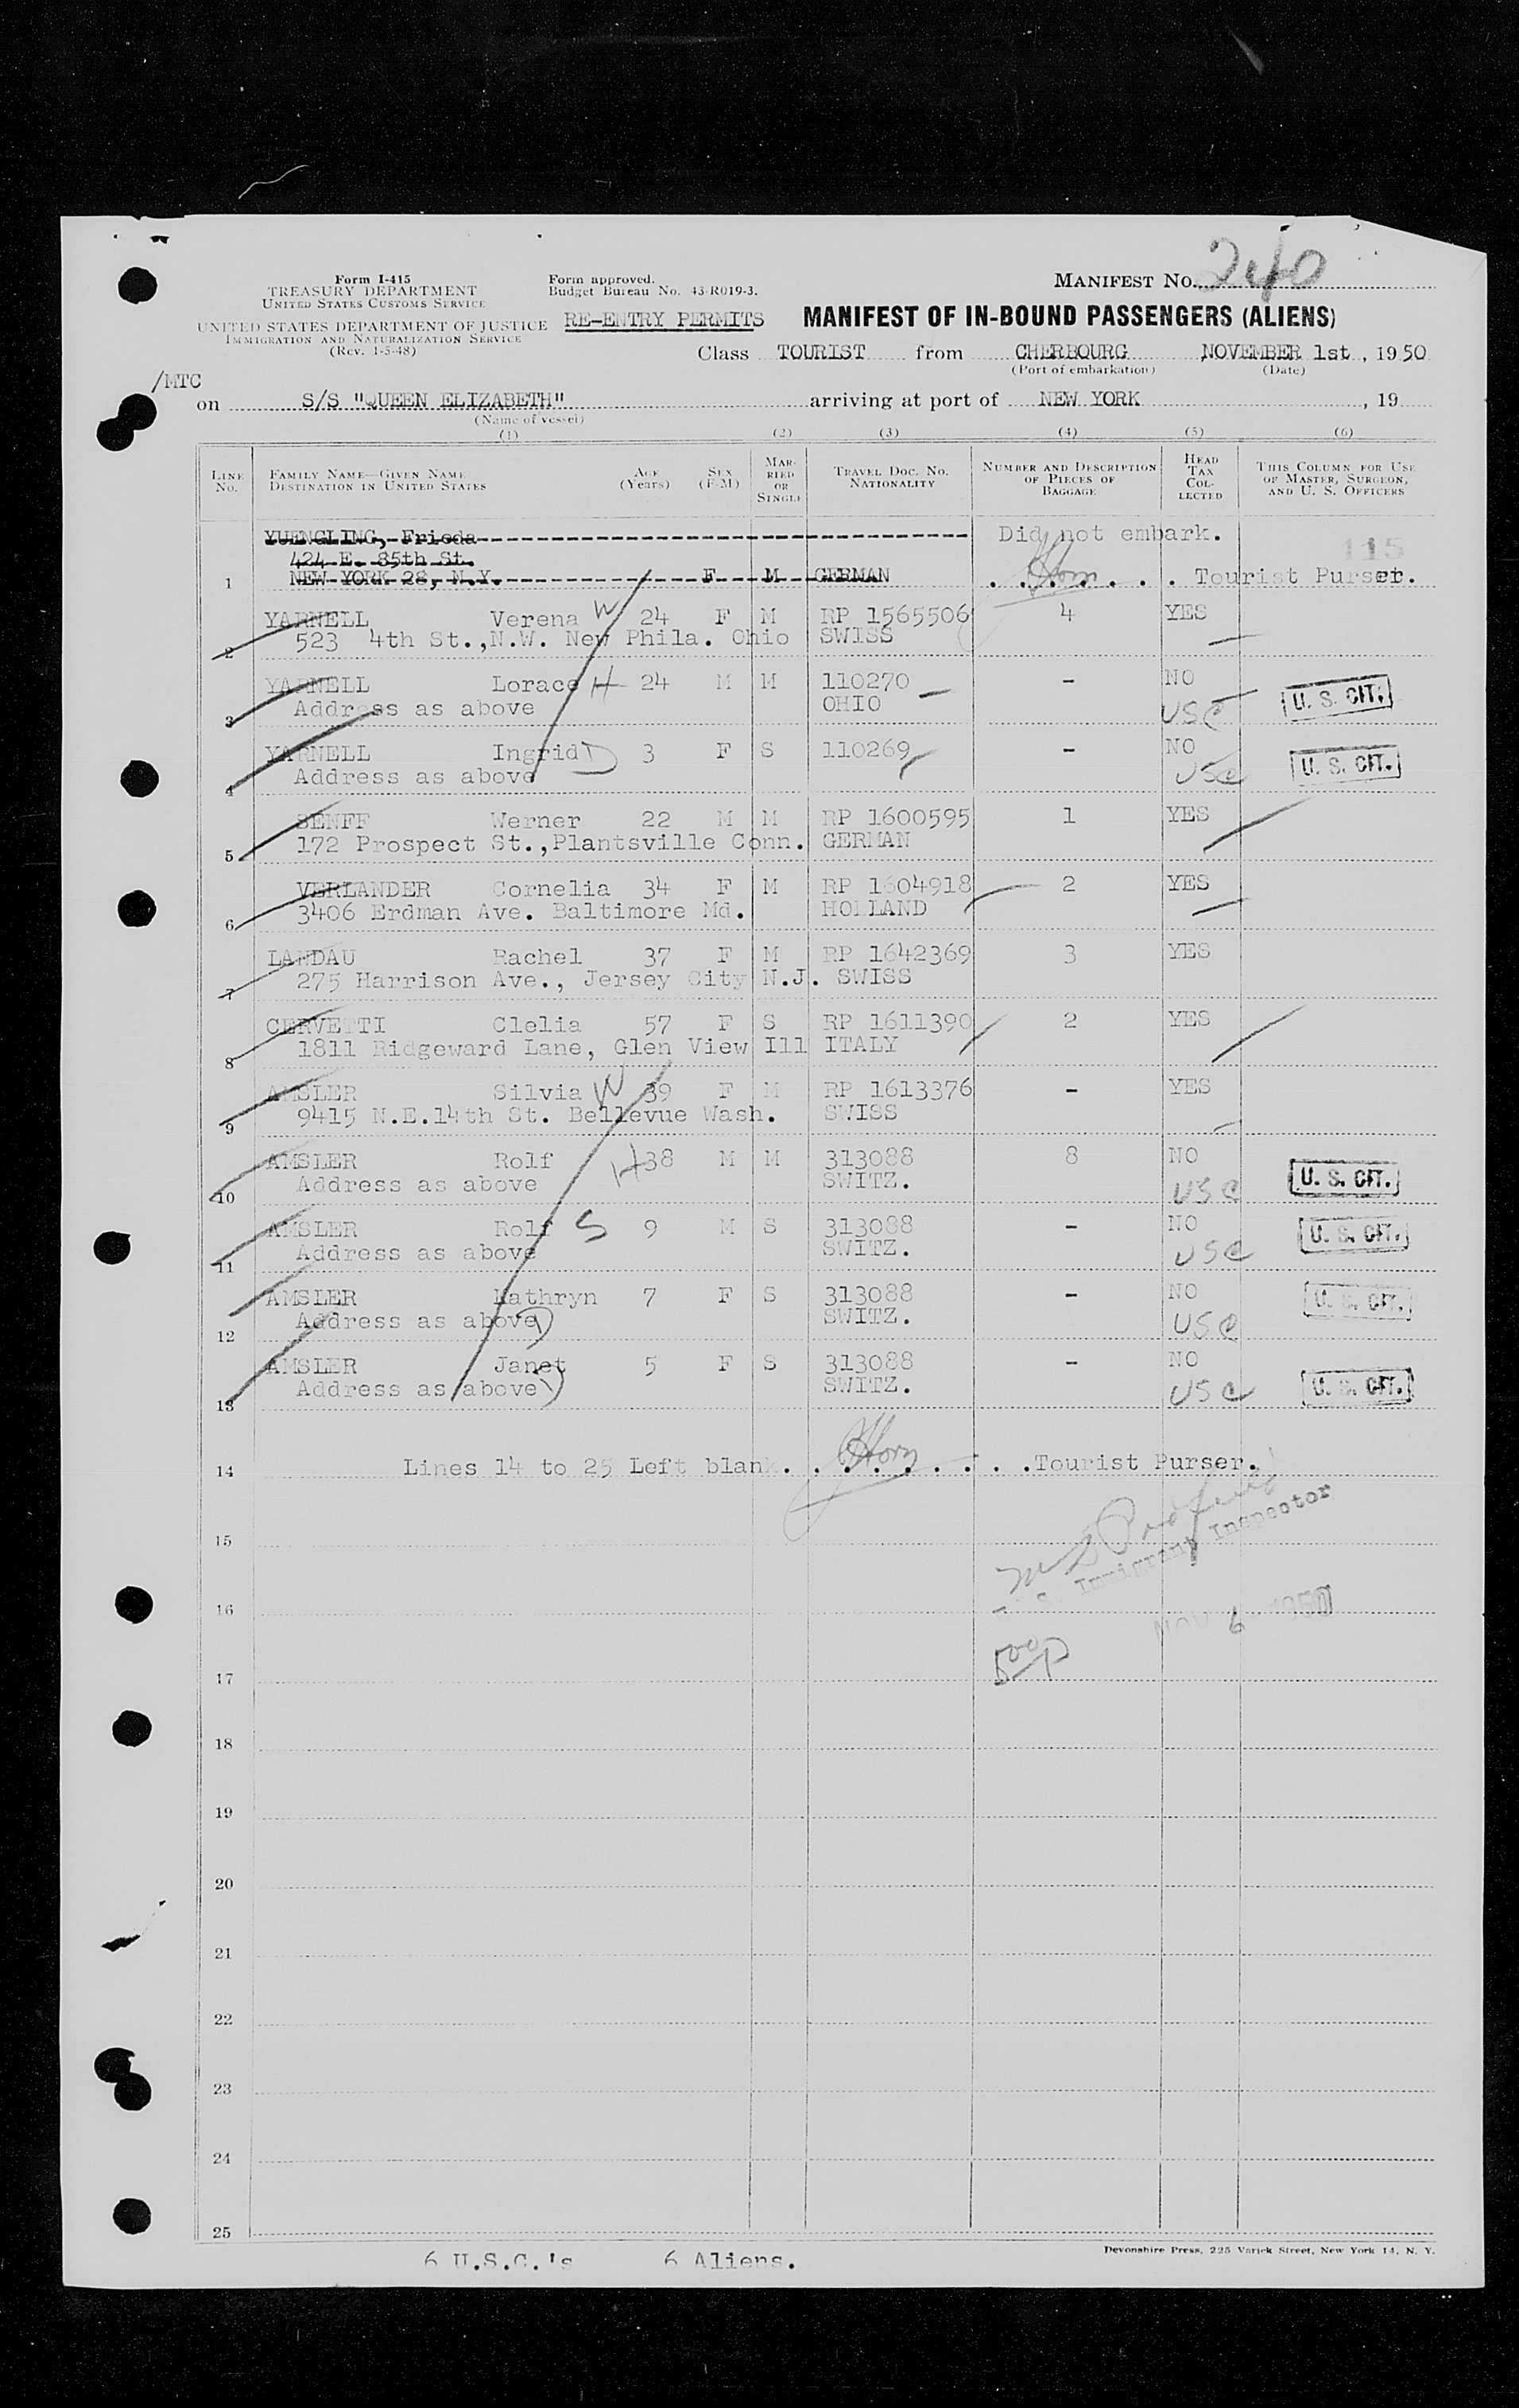 Form I-415
TREASURY DEPARTMENT
UNITED STATES CUSTOMS SERVICE
UNITED STATES DEPARTMENT OF JUSTICE
IMMIGRATION AND NATURALIZATION SERVICE
(Rev. 1-5-48)
Form approved.
Budget Bureau No. 43-R019-3.
RE-ENTRY PERMITS
MANIFEST NO. 240
MANIFEST OF IN-BOUND PASSENGERS (ALIENS)
Class TOURIST from CHERBOURG NOVEMBER 1st, 1950
(Port of embarkation) (Date)
/MTC
on S/S "QUEEN ELIZABETH" arriving at port of NEW YORK, 19
(Name of vessel)
(1) (2) (3) (4) (5) (6)
LINE NO. FAMILY NAME—GIVEN NAME DESTINATION IN UNITED STATES AGE (Years) SEX (F-M) MARRIED OR SINGLE TRAVEL DOC. NO. NATIONALITY NUMBER AND DESCRIPTION OF PIECES OF BAGGAGE HEAD TAX COLLECTED THIS COLUMN FOR USE OF MASTER, SURGEON, AND U. S. OFFICERS
YUENGLING, Frieda Did not embark.
424 E. 85th St. 115
1 NEW YORK 28, N.Y. F M GERMAN Horn Tourist Purser.
2 YARNELL Verena W 24 F M RP 1565506 4 YES
523 4th St.,N.W. New Phila. Ohio SWISS
3 YARNELL Lorace H 24 M M 110270 - NO
Address as above OHIO USC U. S. CIT.
4 YARNELL Ingrid D 3 F S 110269 - NO
Address as above USC U. S. CIT.
5 SENFF Werner 22 M M RP 1600595 1 YES
172 Prospect St.,Plantsville Conn. GERMAN
6 VERLANDER Cornelia 34 F M RP 1604918 2 YES
3406 Erdman Ave. Baltimore Md. HOLLAND
7 LANDAU Rachel 37 F M RP 1642369 3 YES
275 Harrison Ave., Jersey City N.J. SWISS
8 CERVETTI Clelia 57 F S RP 1611390 2 YES
1811 Ridgeward Lane, Glen View Ill ITALY
9 AMSLER Silvia W 39 F M RP 1613376 - YES
9415 N.E.14th St. Bellevue Wash. SWISS
10 AMSLER Rolf H 38 M M 313088 8 NO
Address as above SWITZ. USC U. S. CIT.
11 AMSLER Rolf S 9 M S 313088 - NO
Address as above SWITZ. USC U. S. CIT.
12 AMSLER Kathryn 7 F S 313088 - NO
Address as above D SWITZ. USC U. S. CIT.
13 AMSLER Janet 5 F S 313088 - NO
Address as above D SWITZ. USC U. S. CIT.
14 Lines 14 to 25 Left blank. Horn Tourist Purser.
15
U. S. Immigrant Inspector
16 NOV 6 1950
17 500P
18
19
20
21
22
23
24
25
6 U.S.C.'s 6 Aliens.
Devonshire Press, 225 Varick Street, New York 14, N. Y.